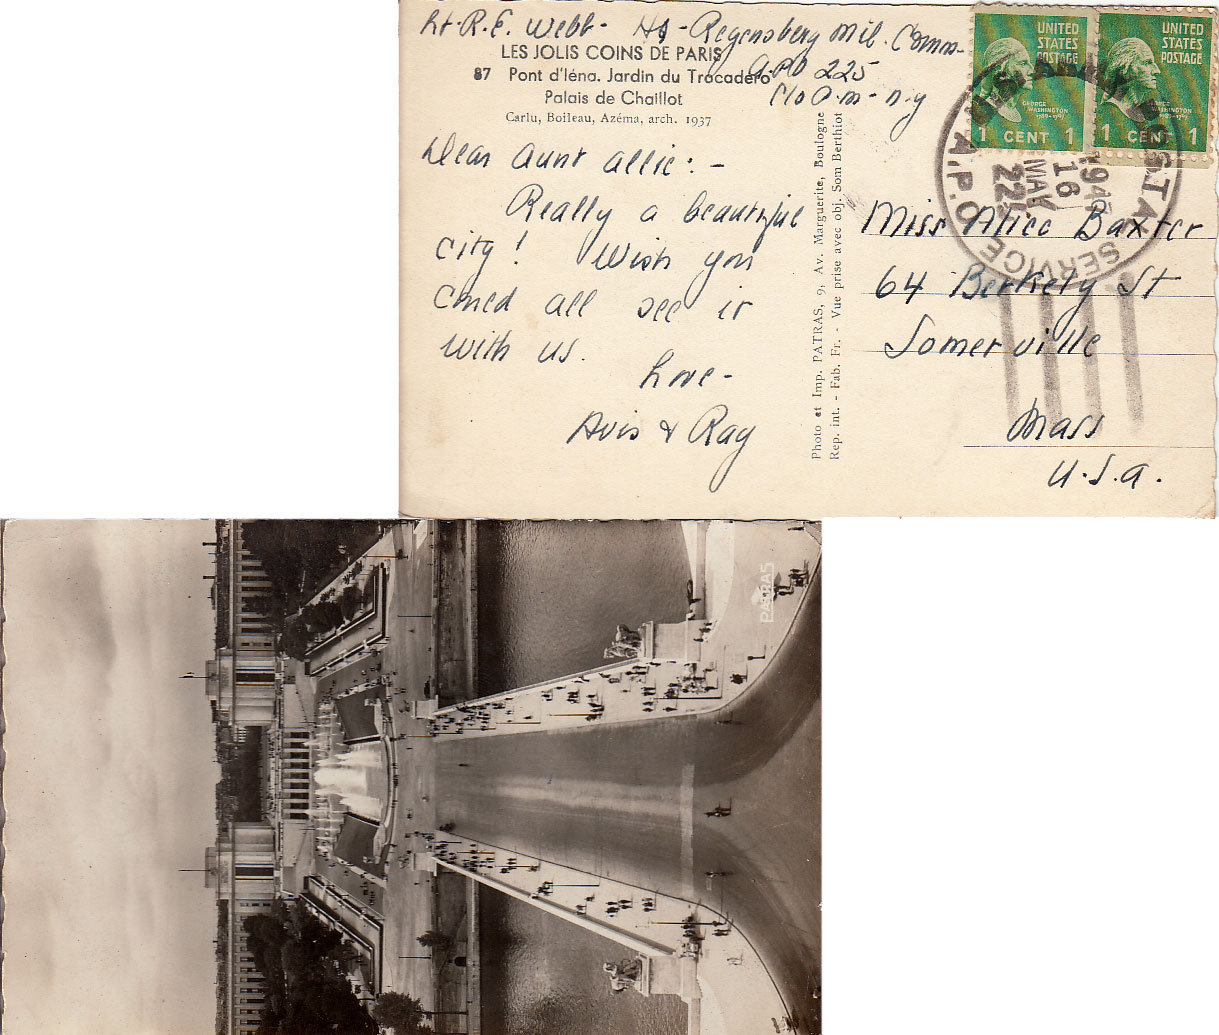 Lt. R. E. Webb - Hq - Regensberg Mil. Comm -
APO 225
c/o P.M - N.Y
LES JOLIS COINS DE PARIS
87 Pont d'Iéna. Jardin du Trocadéro
Palais de Chaillot
Carlu, Boileau, Azéma, arch. 1937
Dear Aunt Allie: -
Really a beautiful
city! Wish you
could all see it
with us.
Love -
Avis & Ray
Photo et Imp. PATRAS, 9, Av. Marguerite, Boulogne
Rep. int. - Fab. Fr. - Vue prise avec obj. Som Berthiot
UNITED
STATES
POSTAGE
GEORGE
WASHINGTON
1789-1797
1 CENT 1
UNITED
STATES
POSTAGE
GEORGE
WASHINGTON
1789-1797
1 CENT 1
A.P.O. SERVICE
1947
16
MAY
225
Miss Alice Baxter
64 Berkely St
Somerville
Mass
U.S.A.
PATRAS